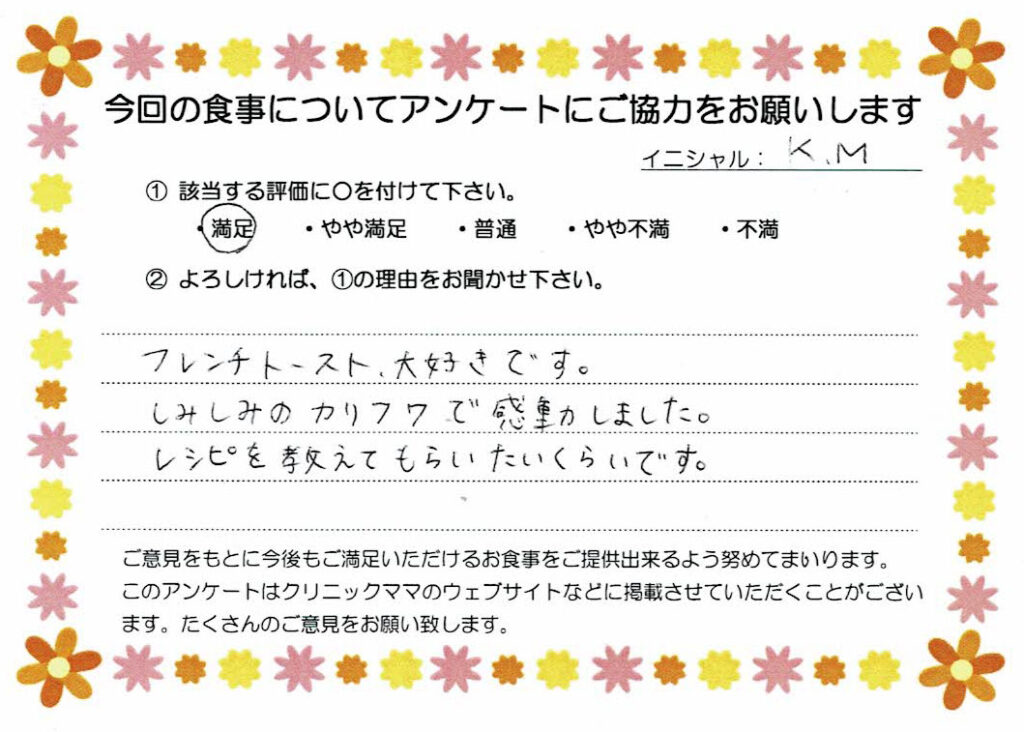 今回の食事についてアンケートにご協力をお願いします
イニシャル： K.M
① 該当する評価に〇を付けて下さい。
・満足 ・やや満足 ・普通 ・やや不満 ・不満
② よろしければ、①の理由をお聞かせ下さい。
フレンチトースト、大好きです。
しみしみのカリフワで感動しました。
レシピを教えてもらいたいくらいです。
ご意見をもとに今後もご満足いただけるお食事をご提供出来るよう努めてまいります。
このアンケートはクリニックママのウェブサイトなどに掲載させていただくことがござい
ます。たくさんのご意見をお願い致します。